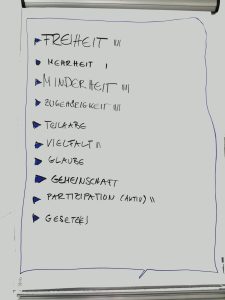 FREIHEIT IIII
MEHRHEIT I
MINDERHEIT IIII
ZUGEHÖRIGKEIT IIII
TEILHABE
VIELFALT II
GLAUBE
GEMEINSCHAFT
PARTIZIPATION (AKTIV) II
GESETZ(E)